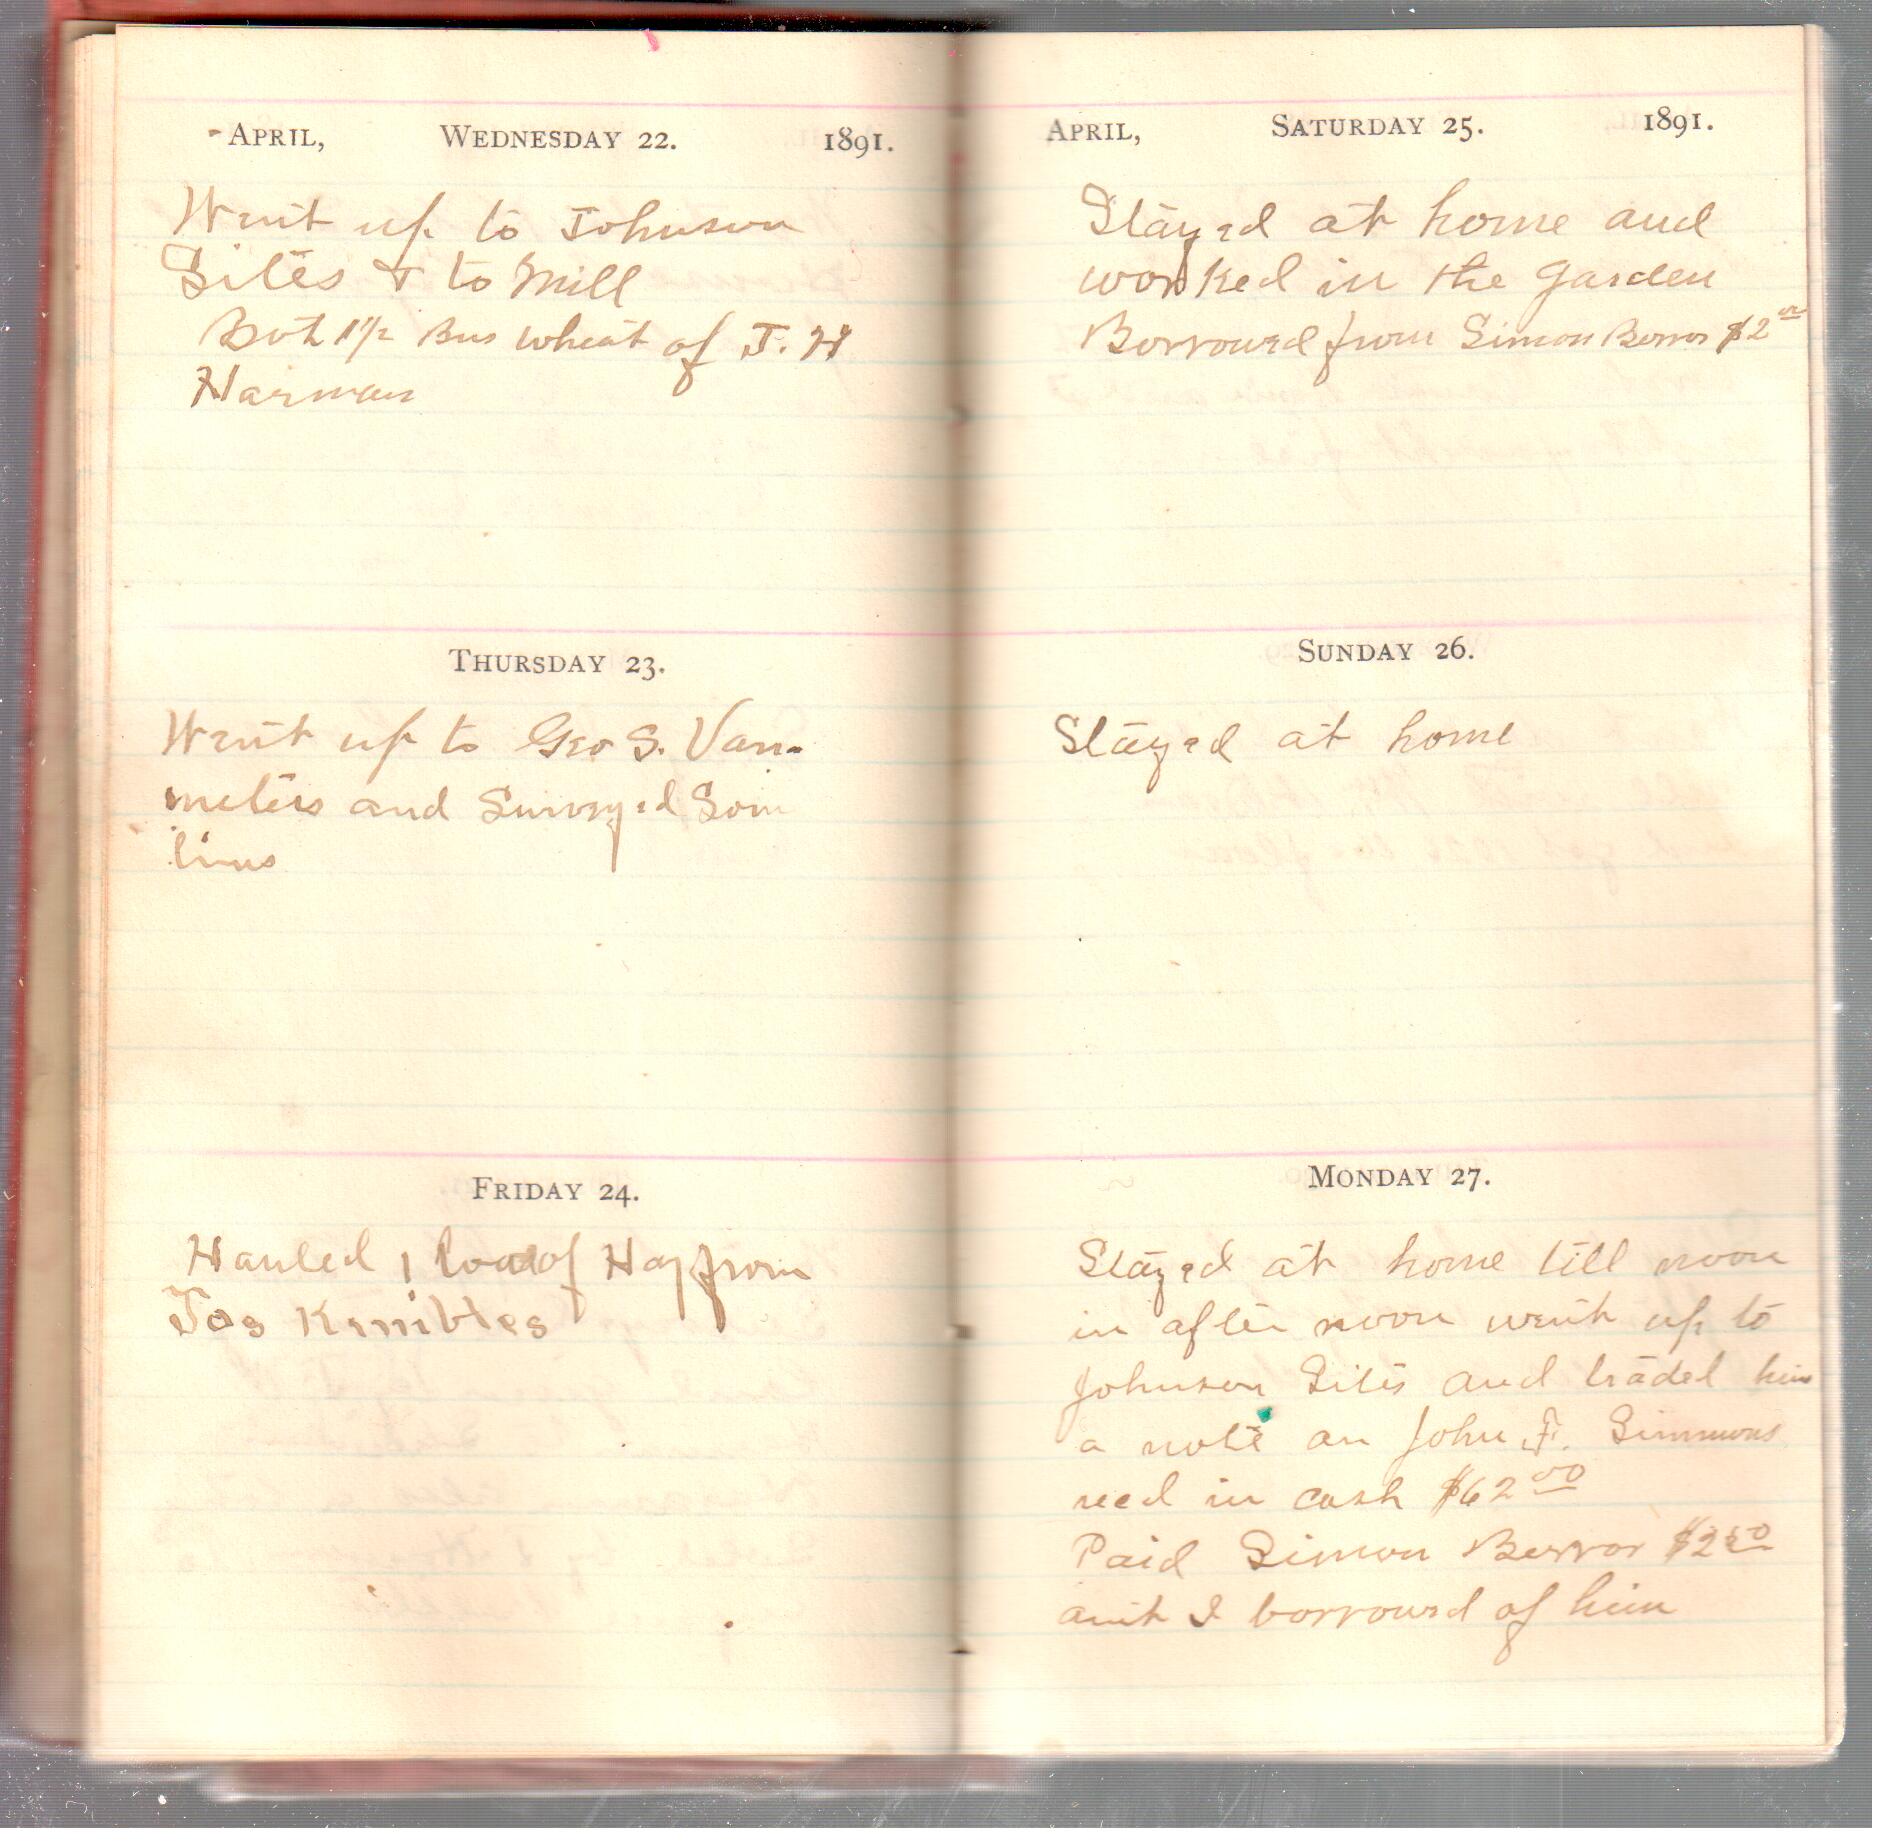 APRIL, WEDNESDAY 22. 1891.
Went up to Johnson
Sites & to Mill
Bot 1 1/2 Bus wheat of J. H
Harman
THURSDAY 23.
Went up to Geo S. Van-
meters and Surveyed Som
lines
FRIDAY 24.
Hauled 1 load of Hay from
Jos Kimbles
APRIL, SATURDAY 25. 1891.
Stayed at home and
worked in the Garden
Borrowed from Simon Borror $2
SUNDAY 26.
Stayed at home
MONDAY 27.
Stayed at home till noon
in after noon went up to
Johnson Sites and traded him
a note on John F. Simmons
recd in cash $62 00
Paid Simon Borror $2 50
amt I borrowed of him